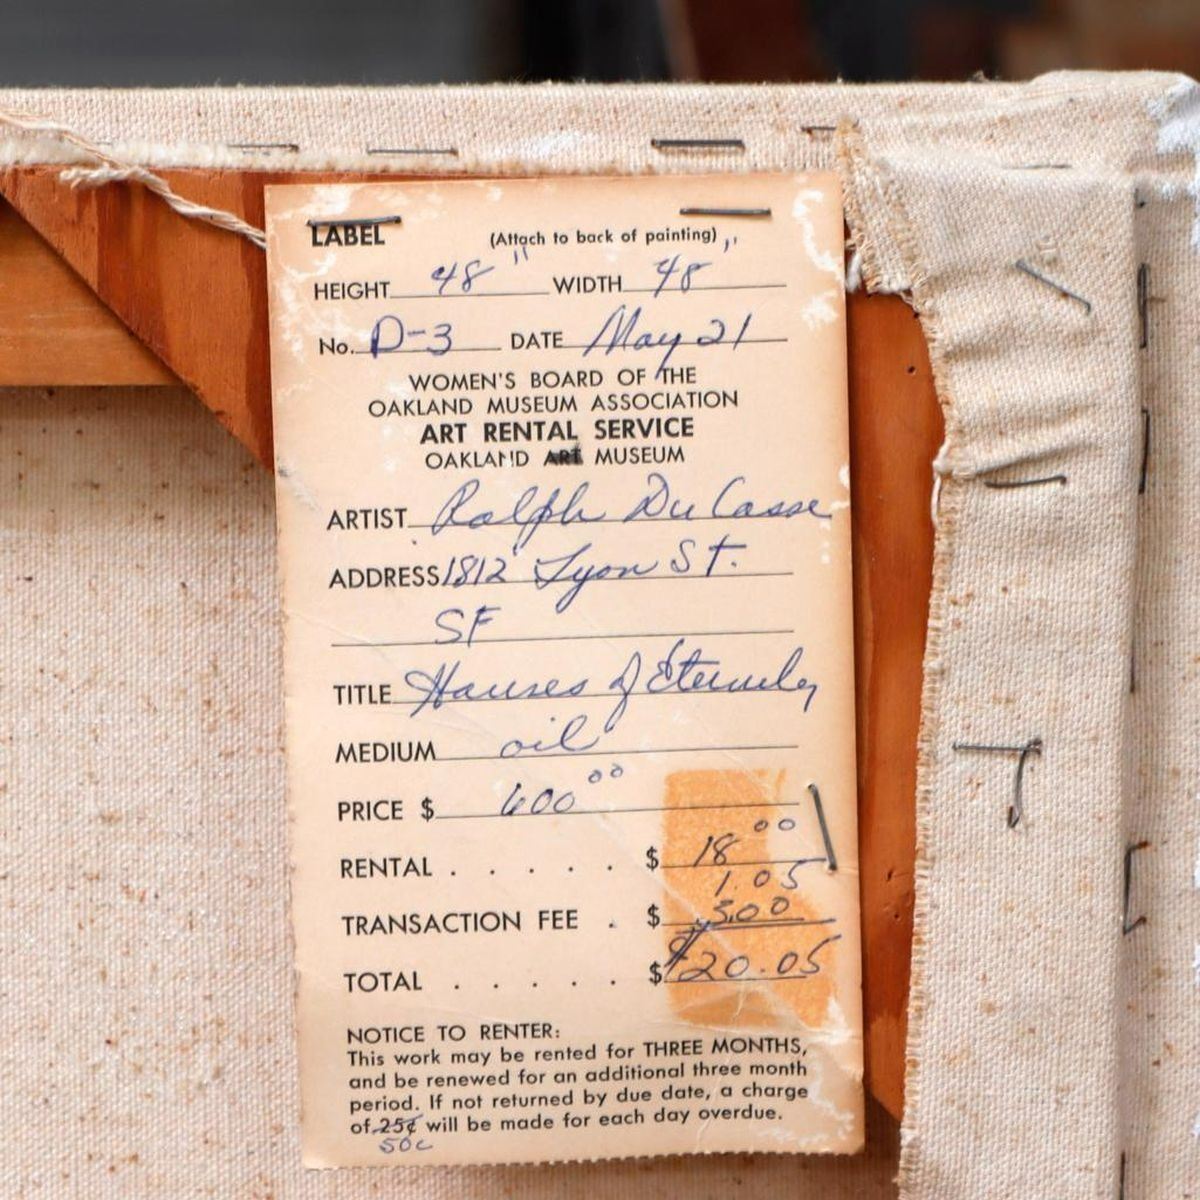 LABEL (Attach to back of painting)
HEIGHT 48" WIDTH 48"
No. D-3 DATE May 21
WOMEN'S BOARD OF THE
OAKLAND MUSEUM ASSOCIATION
ART RENTAL SERVICE
OAKLAND ART MUSEUM
ARTIST Ralph Du Casse
ADDRESS 1812 Lyon St.
SF
TITLE Houses of Eternity
MEDIUM oil
PRICE $ 600 00
RENTAL . . . . . $ 18 00
1.05
TRANSACTION FEE . $ 3.00
TOTAL . . . . . $ $20.05
NOTICE TO RENTER:
This work may be rented for THREE MONTHS,
and be renewed for an additional three month
period. If not returned by due date, a charge
of 25¢ will be made for each day overdue.
50c